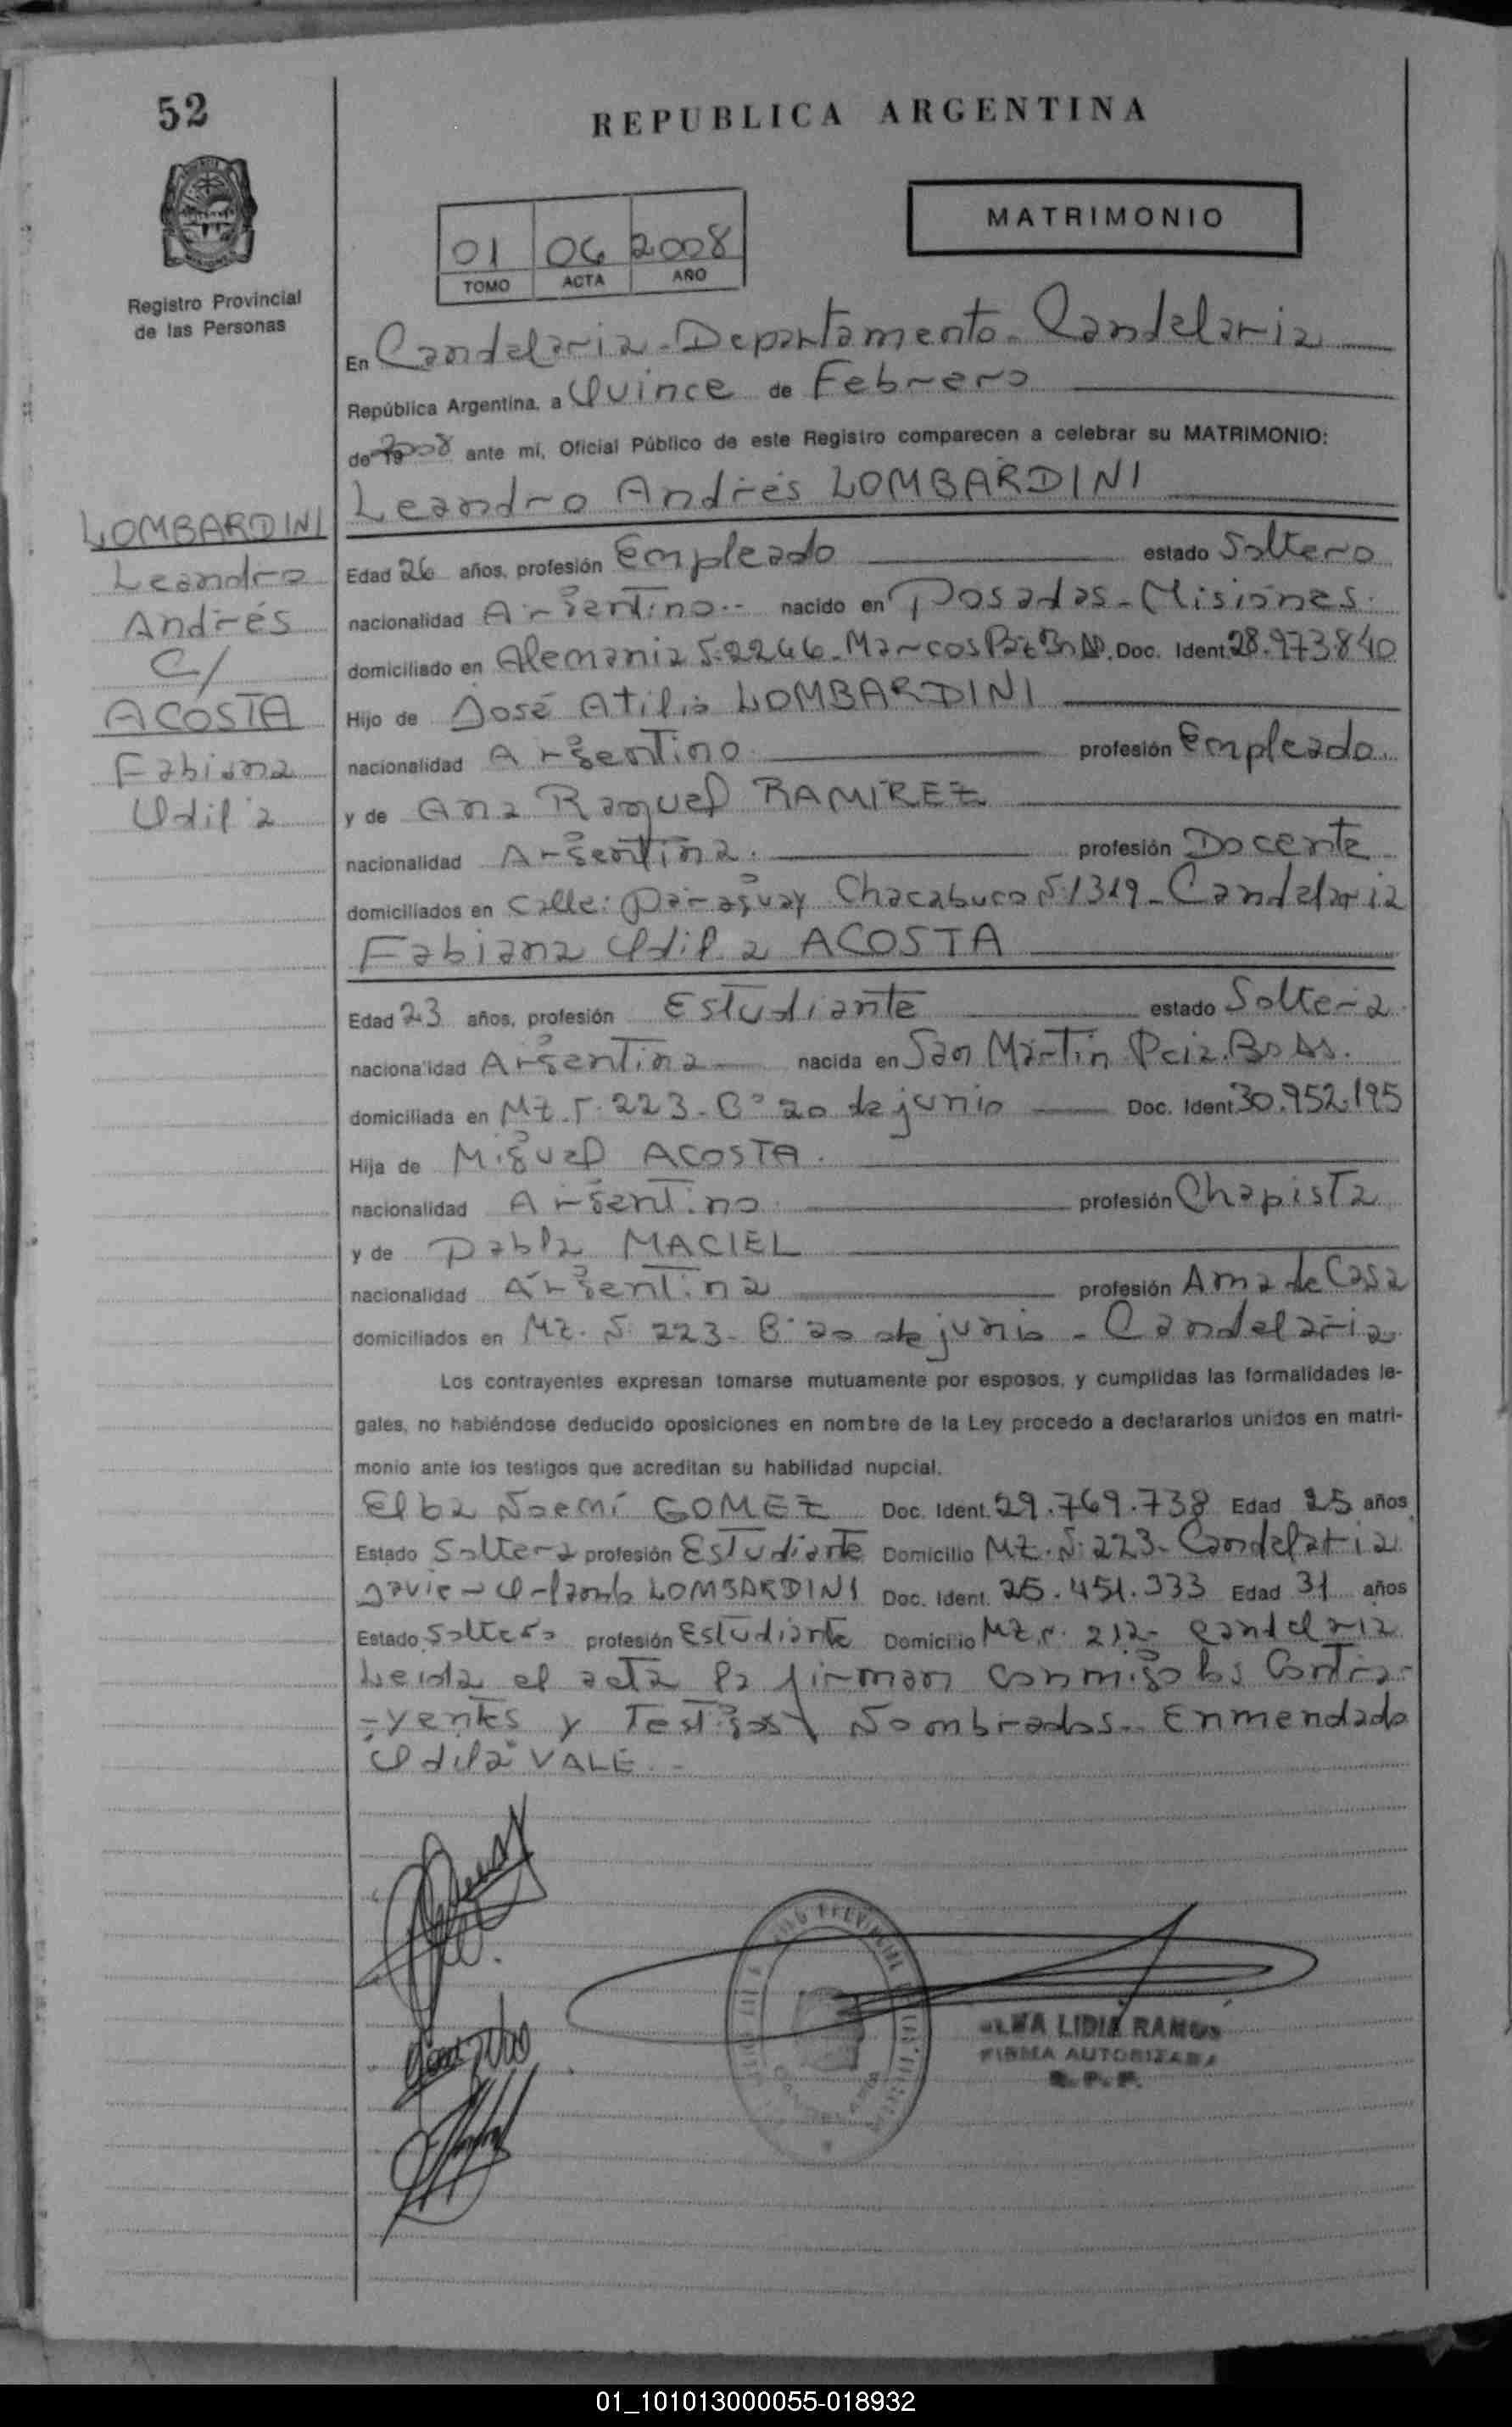 52
REPUBLICA ARGENTINA
MATRIMONIO
01 06 2008
TOMO ACTA AÑO
Registro Provincial
de las Personas
En Candelaria - Departamento - Candelaria
República Argentina, a Quince de Febrero
de 2008 ante mí, Oficial Público de este Registro comparecen a celebrar su MATRIMONIO:
Leandro Andrés LOMBARDINI
LOMBARDINI
Leandro
Andrés
C/
ACOSTA
Fabiana
Odila
Edad 26 años, profesión Empleado estado Soltero
nacionalidad Argentino nacido en Posadas - Misiones.
domiciliado en Alemania N: 2246 - Marcos Paz Bs As. Doc. Ident 28.973.840
Hijo de José Atilio LOMBARDINI
nacionalidad Argentino profesión Empleado
y de Ana Raquel RAMIREZ
nacionalidad Argentina profesión Docente
domiciliados en Calle: Paraguay Chacabuco N: 1319 - Candelaria
Fabiana Odila ACOSTA
Edad 23 años, profesión Estudiante estado Soltera
nacionalidad Argentina nacida en San Martín Pcia. Bs As.
domiciliada en Mz. N: 223 - B° 20 de junio Doc. Ident 30.952.195
Hija de Miguel ACOSTA.
nacionalidad Argentino profesión Chapista
y de Pabla MACIEL
nacionalidad Argentina profesión Ama de Casa
domiciliados en Mz. N: 223 - B° 20 de junio - Candelaria
Los contrayentes expresan tomarse mutuamente por esposos, y cumplidas las formalidades le-
gales, no habiéndose deducido oposiciones en nombre de la Ley procedo a declararlos unidos en matri-
monio ante los testigos que acreditan su habilidad nupcial.
Elba Noemí GOMEZ Doc. Ident. 29.769.738 Edad 25 años
Estado Soltera profesión Estudiante Domicilio Mz. N: 223 - Candelaria
Javier Orlando LOMBARDINI Doc. Ident. 25.451.333 Edad 31 años
Estado Soltero profesión Estudiante Domicilio Mz. N: 212 - Candelaria
Leida el acta la firman conmigo los Contra-
-yentes y Testigos Nombrados. Enmendado
Odila VALE.
LIDIA RAMOS
FIRMA AUTORIZADA
R. P. P.
01_101013000055-018932